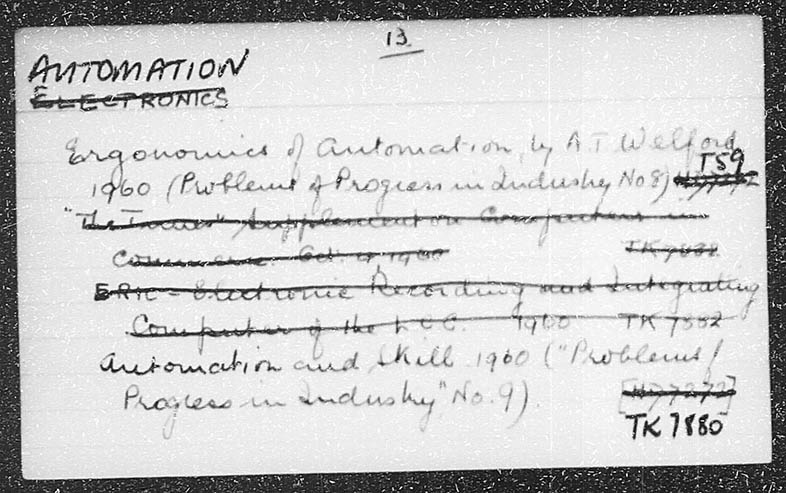 13
AUTOMATION
ELECTRONICS
Ergonomics of Automation, by A T Welford
1960 (Problems of Progress in Industry No 8) T59
"The Times" Supplement on Computers in
Commerce. Oct 1960 TK 7882
ERIC - Electronic Recording and Integrating
Computer of the L.C.C. 1960 TK 7882
Automation and Skill 1960 ("Problems of
Progress in Industry" No. 9). [HD7272]
TK 7880